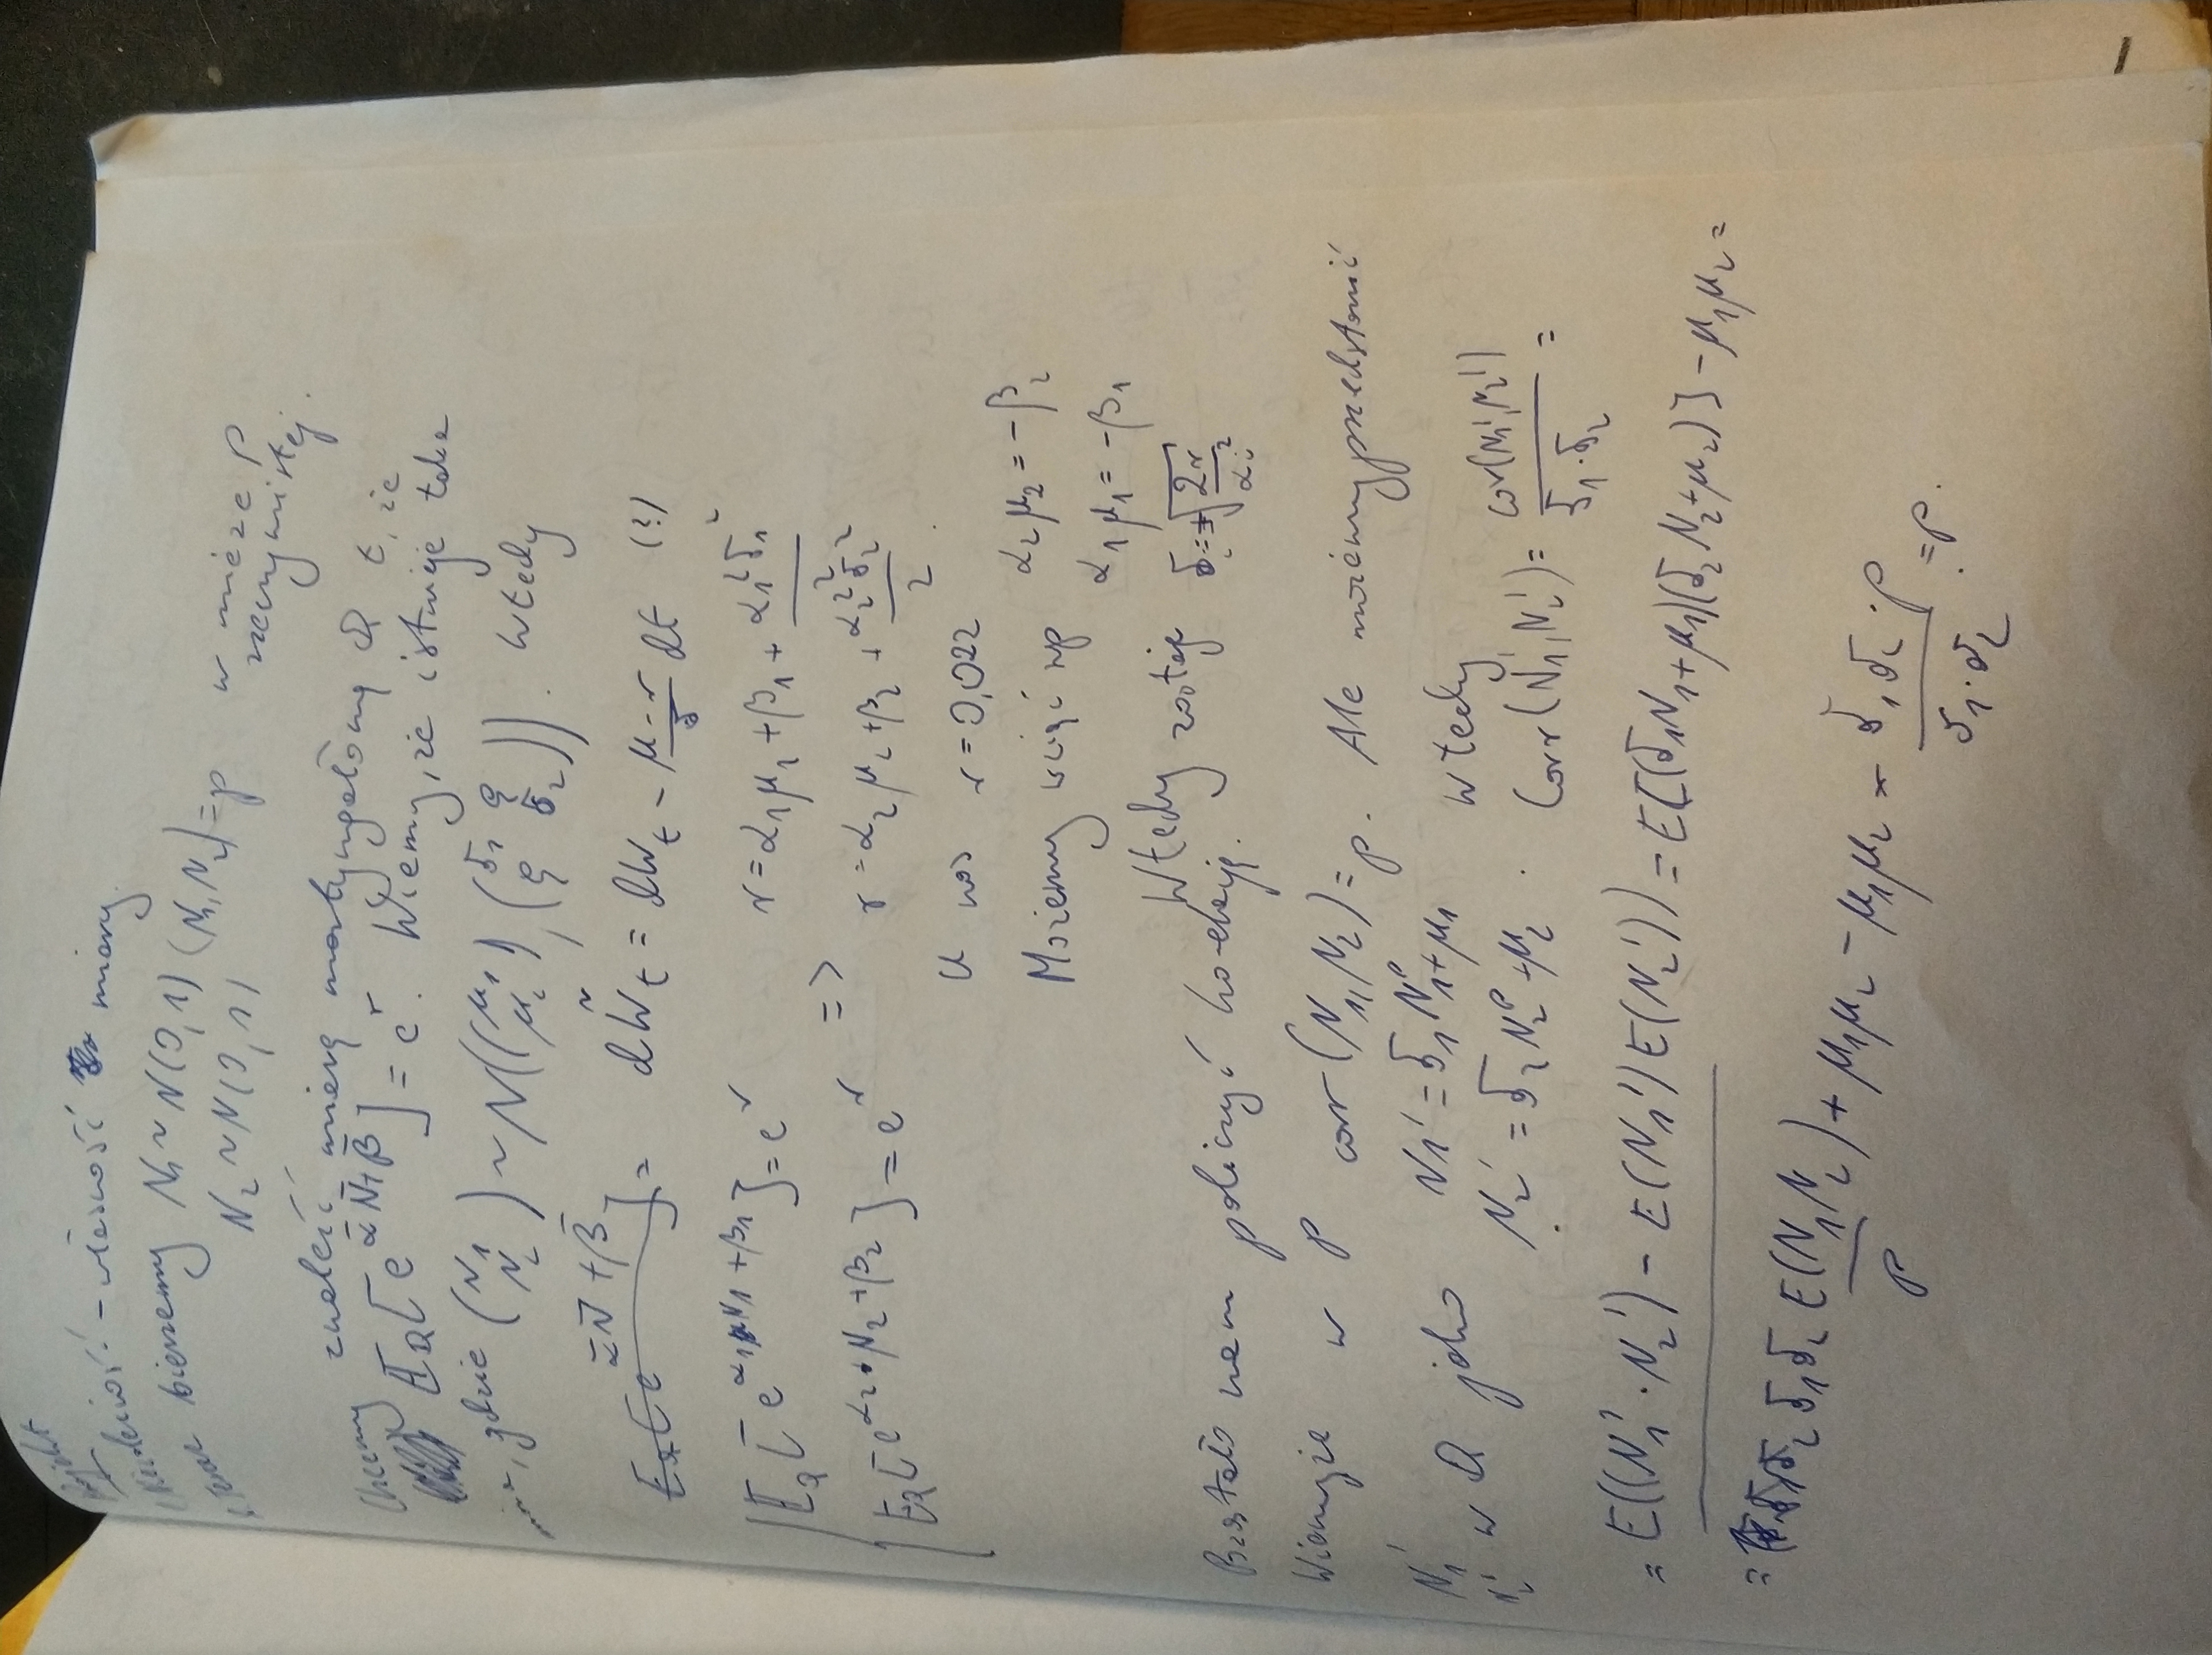 Projekt
- własność miary.
Teraz bierzemy N₁ ~ N(0,1) (N₁,N₂)=ρ w mierze P
N₂ ~ N(0,1) rzeczywistej.
Chcemy znaleść miarę martyngałową Q t, że
E_Q[e^{ᾱN̄+β̄}] = e^r. Wiemy, że istnieje taka
gdzie (N₁ N₂) ~ N((μ₁ μ₂), (σ₁ ρ ρ σ₂)). Wtedy
E_Q[e^{ᾱN̄+β̄}] = dW̃_t = dW_t - (μ-r)/σ dt (?)
E_Q[e^{α₁N₁+β₁}] = e^r r = α₁μ₁ + β₁ + α₁²σ₁²
=>
E_Q[e^{α₂·N₂+β₂}] = e^r r = α₂μ₂ + β₂ + α₂²σ₂²/2.
U nas r = 0,022
Możemy wziąć np α₂μ₂ = -β₂
α₁μ₁ = -β₁
Wtedy zostaje σᵢ = ±√(2r/αᵢ²)
nam policzyć korelację.
Wiemy że w P corr(N₁,N₂) = ρ. Ale możemy przedstawić
N₁' N₂' w Q jako N1' = σ₁N₁ᴾ + μ₁ wtedy
N₂' = σ₂N₂ᴾ + μ₂. Corr(N₁',N₂') = cov(N₁',N₂')/(σ₁·σ₂) =
= E((N₁'·N₂') - E(N₁')E(N₂')) = E[(σ₁N₁+μ₁)(σ₂N₂+μ₂)] - μ₁μ₂ =
= σ₁σ₂ E(N₁N₂) + μ₁μ₂ - μ₁μ₂ = σ₁σ₂·ρ/(σ₁·σ₂) = ρ.
ρ